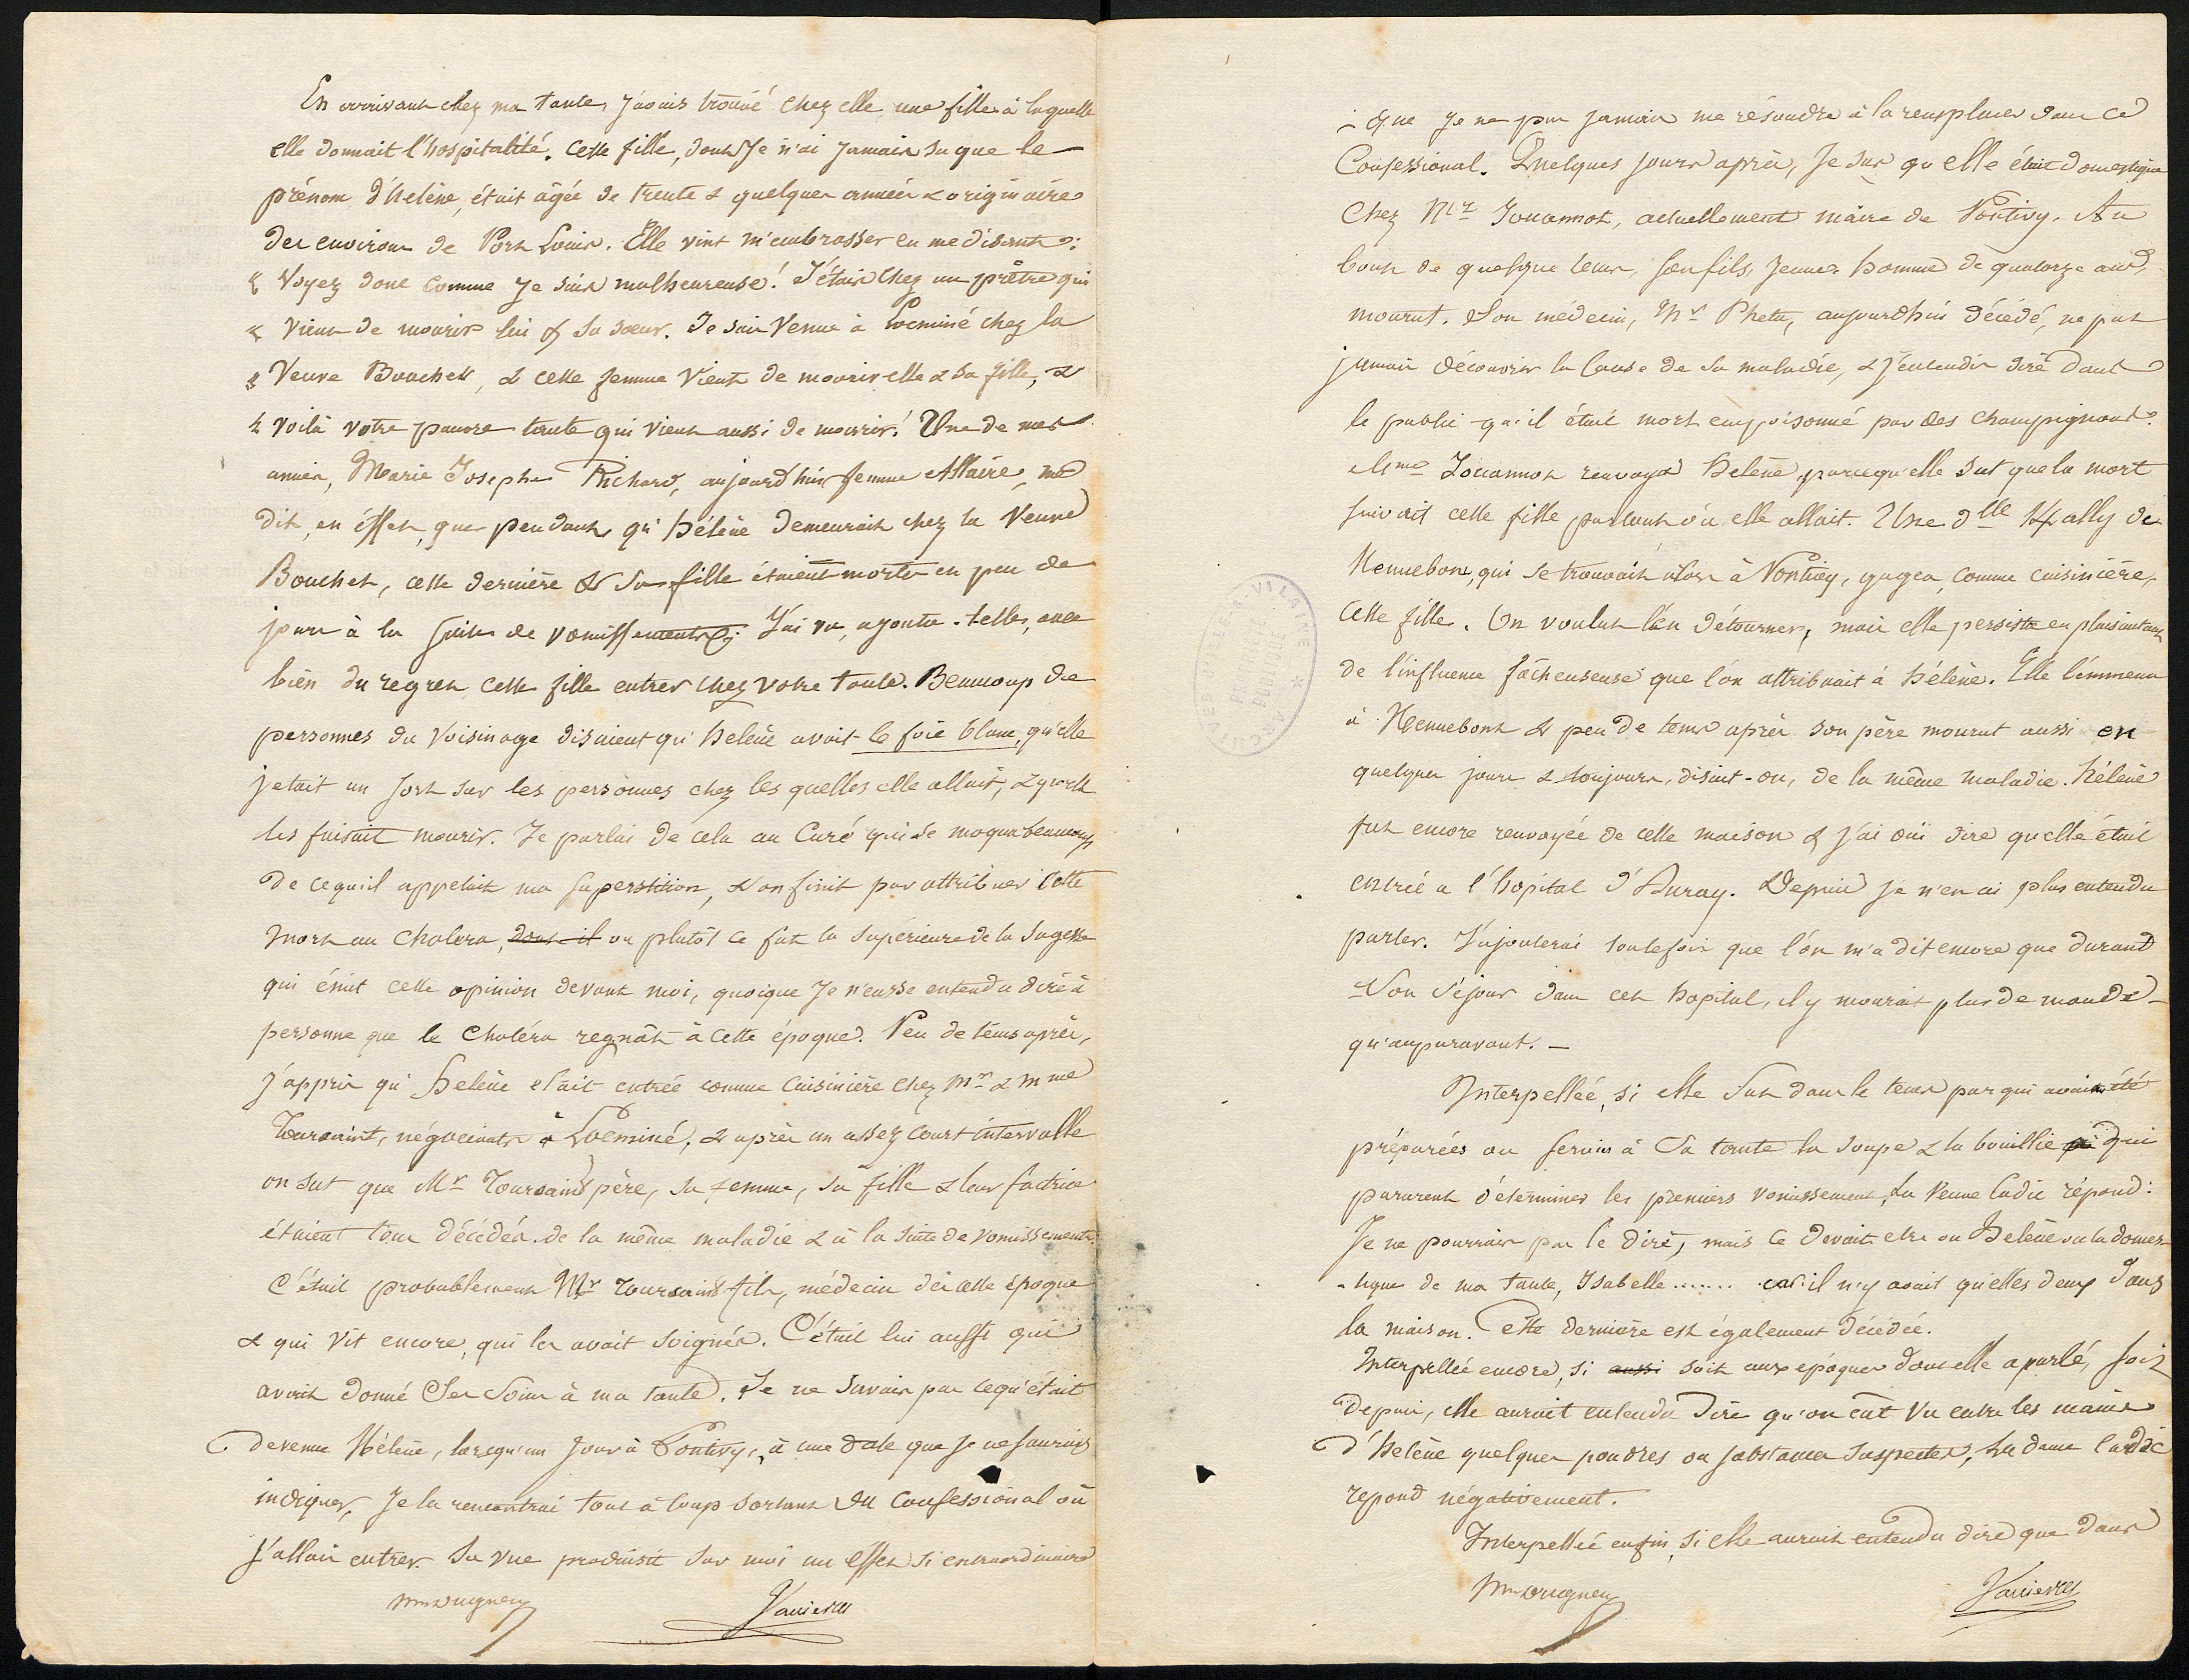 En arrivant chez ma tante, j'avais trouvé chez elle une fille à laquelle
elle donnait l'hospitalité. Cette fille, dont je n'ai jamais su que le
prénom d'hélène, était âgée de trente & quelques années & originaire
des environs de Port Louis. Elle vint m'embrasser en me disant:
« Voyez donc comme je suis malheureuse! J'étais chez un prêtre qui
« vient de mourir lui & sa sœur. Je suis venue à Locminé chez la
« Veuve Bouchet, & cette femme vient de mourir elle & sa fille, &
« voilà votre pauvre tante qui vient aussi de mourir! Une de mes
amies, Marie Josephe Richard, aujourd'hui femme Allaire, me
dit, en effet, que pendant qu'hélène demeurait chez la Veuve
Bouchet, cette dernière & sa fille étaient mortes en peu de
jours à la suite de vomissements. J'ai vu, ajouta-t-elle, avec
bien du regret cette fille entrer chez votre tante. Beaucoup de
personnes du voisinage disaient qu'helène avait le foie blanc, qu'elle
jetait un sort sur les personnes chez lesquelles elle allait, & qu'elle
les faisait mourir. Je parlai de cela au Curé qui se moqua beaucoup
de ce qu'il appelait ma superstition, & on finit par attribuer cette
mort au choléra, dont il ou plutôt ce fut la supérieure de la Sagesse
qui émit cette opinion devant moi, quoique je n'eusse entendu dire à
personne que le choléra regnât à cette époque. Peu de tems après,
j'appris qu'helène était entrée comme cuisinière chez Mr & Mme
Toursaint, négociants à Locminé, & après un assez court intervalle
on sut que Mr Toursaint père, sa femme, sa fille & leur factrice
étaient tous décédés de la même maladie & à la suite de vomissements.
C'était probablement Mr Toursaint fils, médecin dès cette époque
& qui vit encore, qui les avait soignés. C'était lui aussi qui
avait donné ses soins à ma tante. Je ne savais pas ce qu'était
devenue Hélène, lorsqu'un jour à Pontivy, à une date que je ne saurais
indiquer, je la rencontrai tout à coup sortant du confessional où
j'allais entrer. Sa vue produisit sur moi un effet si extraordinaire
- que je ne pus jamais me résoudre à la remplacer dans ce
Confessional. Quelques jours après, je sus qu'elle était domestique
chez Mr Jouannot, actuellement maire de Pontivy. Au
bout de quelque tems, son fils, jeune homme de quatorze ans,
mourut. Son médecin, Mr Phetu, aujourd'hui décédé, ne put
jamais découvrir la cause de sa maladie, & j'entendis dire dans
le public qu'il était mort empoisonné par des champignons.
Mme Jouannot renvoya helène, parcequ'elle sut que la mort
suivait cette fille partout où elle allait. Une dlle Kfally de
Hennebont, qui se trouvait alors à Pontivy, gagea, comme cuisinière,
cette fille. On voulut l'en détourner, mais elle persista en plaisantant
de l'influence fâcheusense que l'on attribuait à hélène. Elle l'emmena
à Hennebont & peu de tems après son père mourut aussi en
quelques jours & toujours, disait-on, de la même maladie. hélène
fut encore renvoyée de cette maison & j'ai oui dire qu'elle était
entrée à l'hopital d'Auray. Depuis je n'en ai plus entendu
parler. J'ajouterai toutefois que l'on m'a dit encore que durant
son séjour dans cet hopital, il y mourait plus de monde
qu'auparavant. -
Interpellée, si elle sut dans le tems par qui avaient été
préparées ou servies à sa tante la soupe & la bouillie qui
parurent déterminer les premiers vomissements, la veuve Cadic répond:
Je ne pourrais pas le dire, mais ce devait etre ou Helène ou la domes-
-tique de ma tante, Isabelle ....... car il n'y avait qu'elles deux dans
la maison. Cette dernière est également décédée.
Interpellée encore, si aussi soit aux époques dont elle a parlé, soit
depuis, elle aurait entendu dire qu'on eût vu entre les mains
d'Helène quelques poudres ou substances suspectes, la dame Cadic
repond négativement.
Interpellée enfin, si elle aurait entendu dire que dans
ARCHIVES D'ILLE-&-VILAINE